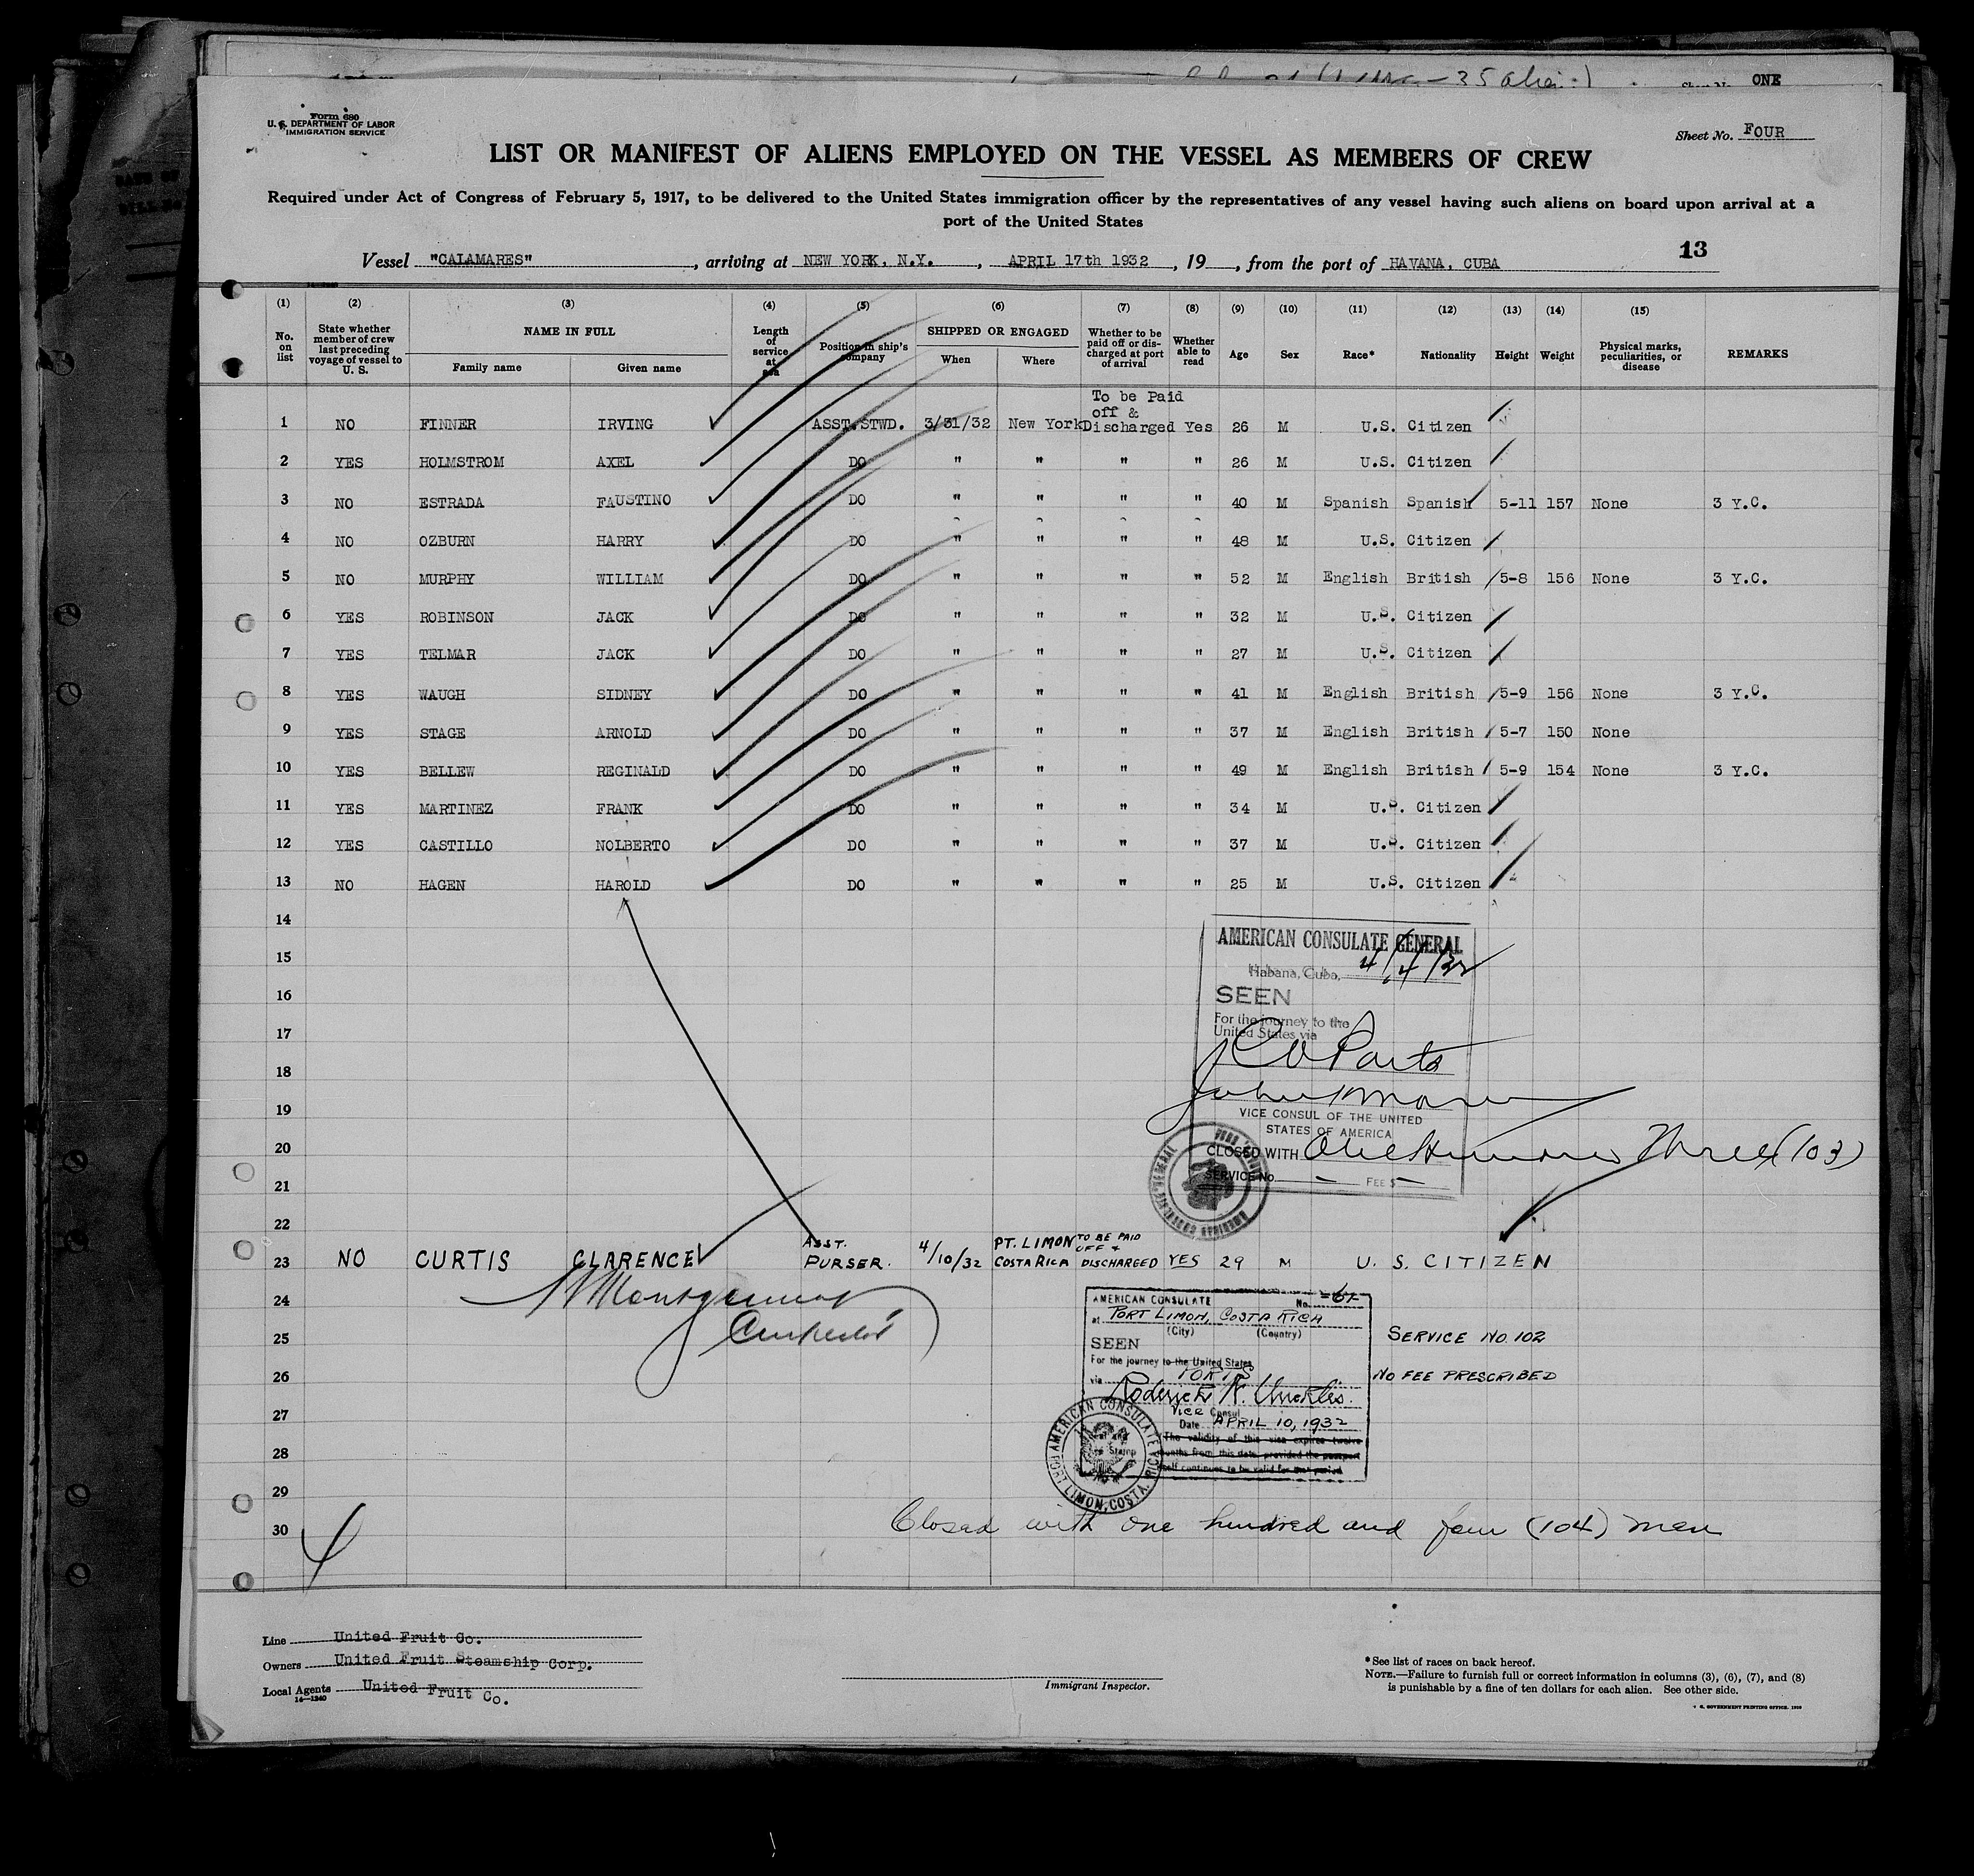 ONE
Form 680
U. S. DEPARTMENT OF LABOR
IMMIGRATION SERVICE
Sheet No. FOUR
LIST OR MANIFEST OF ALIENS EMPLOYED ON THE VESSEL AS MEMBERS OF CREW
Required under Act of Congress of February 5, 1917, to be delivered to the United States immigration officer by the representatives of any vessel having such aliens on board upon arrival at a
port of the United States
13
Vessel "CALAMARES", arriving at NEW YORK, N.Y., APRIL 17th 1932, 19, from the port of HAVANA, CUBA
(1) (2) (3) (4) (5) (6) (7) (8) (9) (10) (11) (12) (13) (14) (15)
No. on list
State whether member of crew last preceding voyage of vessel to U. S.
NAME IN FULL
Family name
Given name
Length of service at sea
Position in ship's company
SHIPPED OR ENGAGED
When
Where
Whether to be paid off or discharged at port of arrival
Whether able to read
Age
Sex
Race*
Nationality
Height
Weight
Physical marks, peculiarities, or disease
REMARKS
To be Paid
off &
1 NO FINNER IRVING ASST.STWD. 3/31/32 New York Discharged Yes 26 M U.S. Citizen
2 YES HOLMSTROM AXEL DO " " " " 26 M U.S. Citizen
3 NO ESTRADA FAUSTINO DO " " " " 40 M Spanish Spanish 5-11 157 None 3 Y.C.
4 NO OZBURN HARRY DO " " " " 48 M U.S. Citizen
5 NO MURPHY WILLIAM DO " " " " 52 M English British 5-8 156 None 3 Y.C.
6 YES ROBINSON JACK DO " " " " 32 M U.S. Citizen
7 YES TELMAR JACK DO " " " " 27 M U.S. Citizen
8 YES WAUGH SIDNEY DO " " " " 41 M English British 5-9 156 None 3 Y.C.
9 YES STAGE ARNOLD DO " " " " 37 M English British 5-7 150 None
10 YES BELLEW REGINALD DO " " " " 49 M English British 5-9 154 None 3 Y.C.
11 YES MARTINEZ FRANK DO " " " " 34 M U.S. Citizen
12 YES CASTILLO NOLBERTO DO " " " " 37 M U.S. Citizen
13 NO HAGEN HAROLD DO " " " " 25 M U.S. Citizen
14
15
16
17
18
19
20
21
22
AMERICAN CONSULATE GENERAL
Habana, Cuba,
SEEN
For the journey to the
United States via
VICE CONSUL OF THE UNITED
STATES OF AMERICA
CLOSED WITH One Hundred Three (103)
SERVICE No. – FEE $ –
23 NO CURTIS CLARENCE ASST. PURSER. 4/10/32 PT. LIMON COSTA RICA TO BE PAID OFF & DISCHARGED YES 29 M U. S. CITIZEN
24
25
26
27
28
29
30
AMERICAN CONSULATE No.
at PORT LIMON, COSTA RICA
(City) (Country)
SEEN
For the journey to the United States
via PORTS
Vice Consul
Date APRIL 10, 1932
The validity of this visa expires twelve
months from this date provided the passport
itself continues to be valid for that period
AMERICAN CONSULATE
PORT LIMON, COSTA RICA
SERVICE NO. 102
NO FEE PRESCRIBED
Closed with one hundred and four (104) men
Line United Fruit Co.
Owners United Fruit Steamship Corp.
Local Agents United Fruit Co.
14—1240
Immigrant Inspector.
*See list of races on back hereof.
NOTE.—Failure to furnish full or correct information in columns (3), (6), (7), and (8)
is punishable by a fine of ten dollars for each alien. See other side.